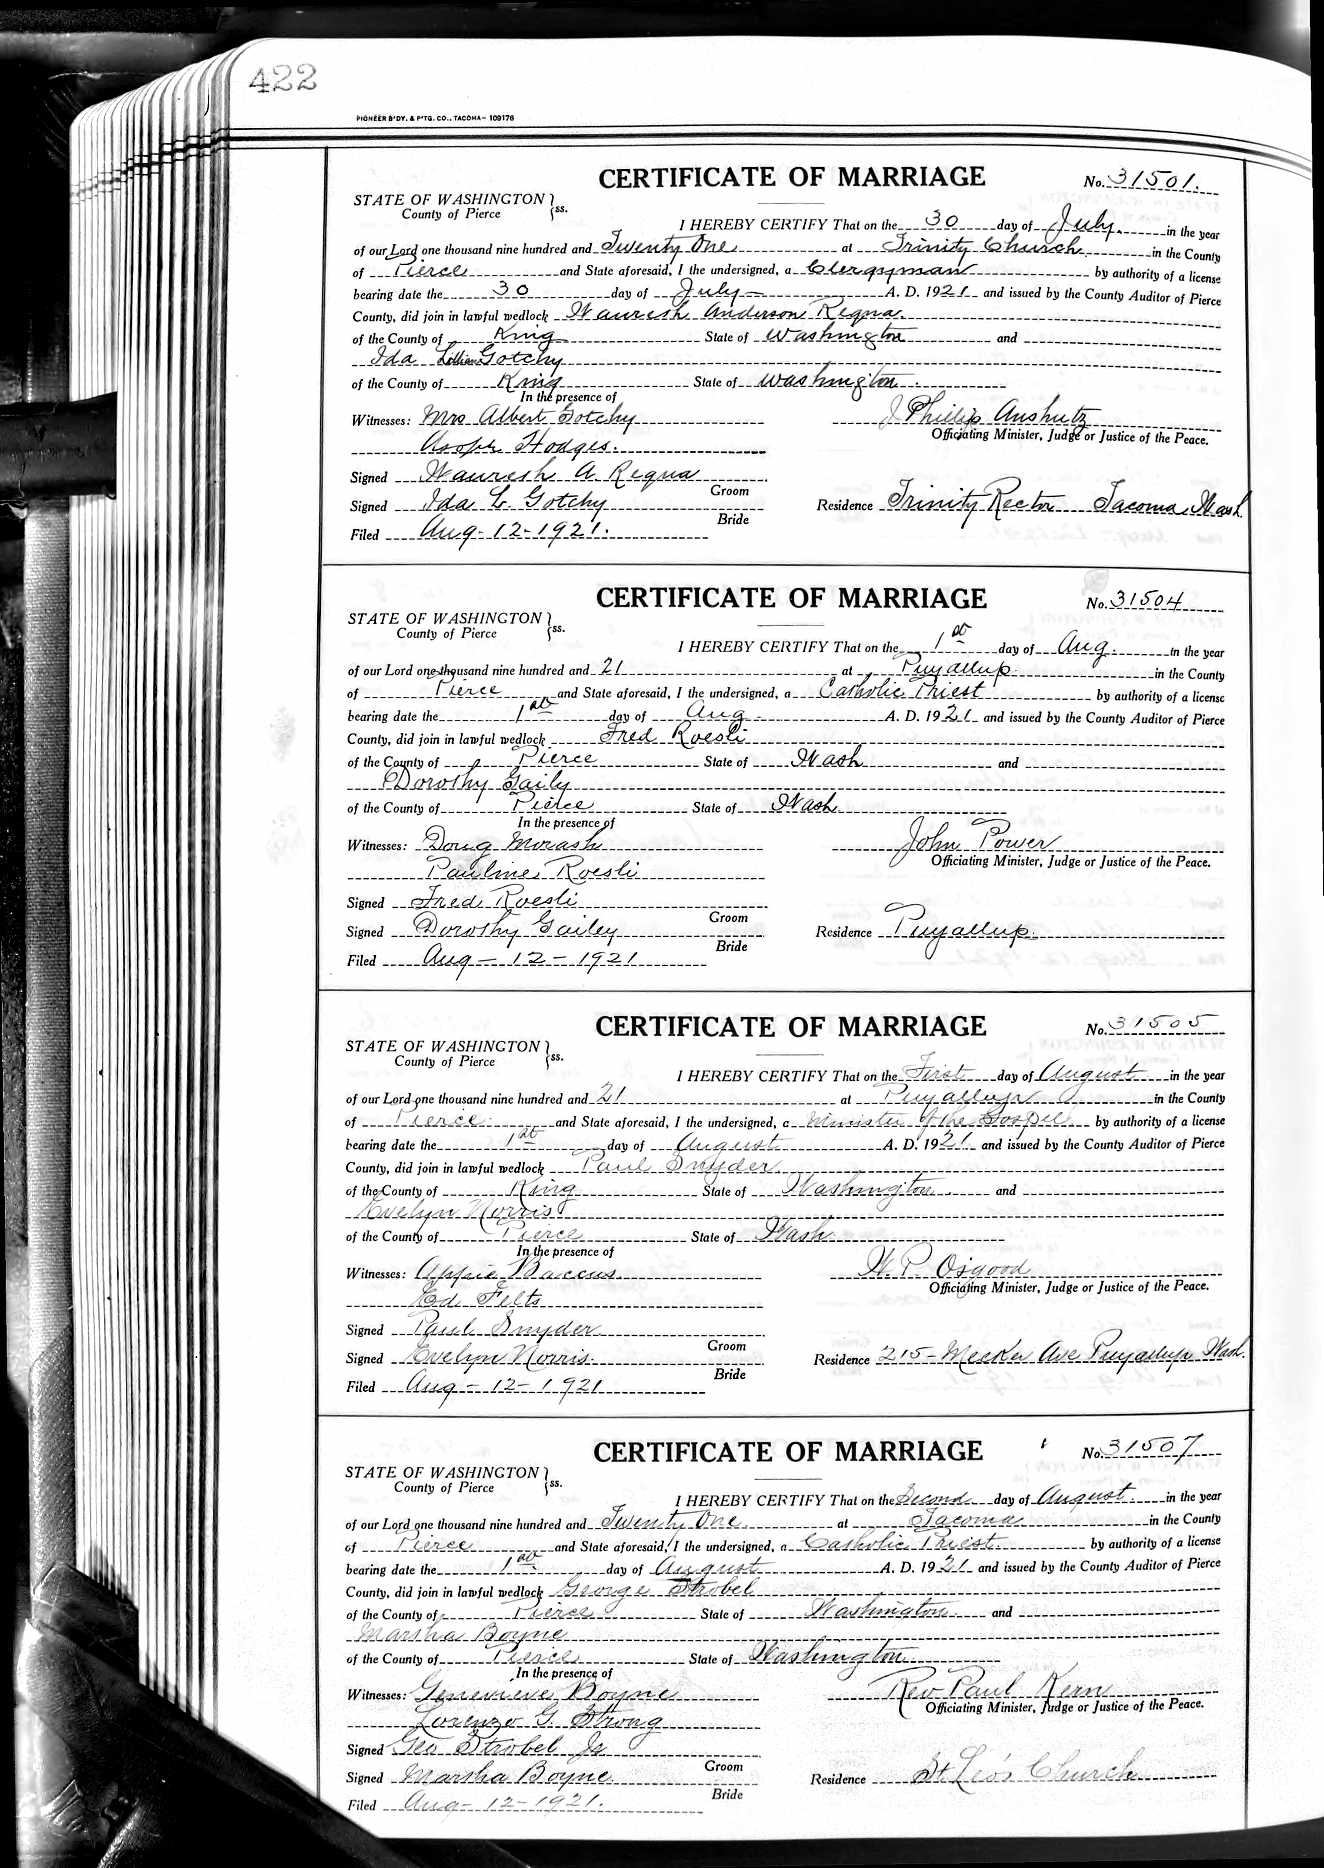 422
PIONEER B'DY. & P'TG. CO., TACOMA— 109176
CERTIFICATE OF MARRIAGE No. 31501.
STATE OF WASHINGTON } ss.
County of Pierce
I HEREBY CERTIFY That on the 30 day of July. in the year
of our Lord one thousand nine hundred and Twenty One at Trinity Church in the County
of Pierce and State aforesaid, I the undersigned, a Clergyman by authority of a license
bearing date the 30 day of July A. D. 1921 and issued by the County Auditor of Pierce
County, did join in lawful wedlock Anderson Regna
of the County of King State of Washington and
Ida Lillian Gotchy
of the County of King State of Washington.
In the presence of
Witnesses: Mrs Albert Gotchy J Phillip Anshutz
Officiating Minister, Judge or Justice of the Peace.
Hodges.
Signed A. Regna
Groom
Signed Ida L. Gotchy Residence Trinity Rector Tacoma, Wash.
Bride
Filed Aug-12-1921.
CERTIFICATE OF MARRIAGE No. 31504
STATE OF WASHINGTON } ss.
County of Pierce
I HEREBY CERTIFY That on the 1st day of Aug. in the year
of our Lord one thousand nine hundred and 21 at Puyallup in the County
of Pierce and State aforesaid, I the undersigned, a Catholic Priest by authority of a license
bearing date the 1st day of Aug. A. D. 1921 and issued by the County Auditor of Pierce
County, did join in lawful wedlock Fred Roesli
of the County of Pierce State of Wash and
Dorothy Gaily
of the County of Pierce State of Wash.
In the presence of
Witnesses: Doug Morash John Power
Officiating Minister, Judge or Justice of the Peace.
Pauline Roesli
Signed Fred Roesli
Groom
Signed Dorothy Gailey Residence Puyallup.
Bride
Filed Aug-12-1921
CERTIFICATE OF MARRIAGE No. 31505
STATE OF WASHINGTON } ss.
County of Pierce
I HEREBY CERTIFY That on the First day of August in the year
of our Lord one thousand nine hundred and 21 at Puyallup in the County
of Pierce and State aforesaid, I the undersigned, a Minister of the Gospel by authority of a license
bearing date the 1st day of August A. D. 1921 and issued by the County Auditor of Pierce
County, did join in lawful wedlock Paul Snyder
of the County of King State of Washington and
Evelyn Norris
of the County of Pierce State of Wash.
In the presence of
Witnesses: Appie Baccus W. P. Osgood
Officiating Minister, Judge or Justice of the Peace.
Ed Felts
Signed Paul Snyder
Groom
Signed Evelyn Norris. Residence 215-Meeker Ave Puyallup Wash.
Bride
Filed Aug-12-1921
CERTIFICATE OF MARRIAGE No. 31507
STATE OF WASHINGTON } ss.
County of Pierce
I HEREBY CERTIFY That on the Second day of August. in the year
of our Lord one thousand nine hundred and Twenty One at Tacoma in the County
of Pierce and State aforesaid, I the undersigned, a Catholic Priest. by authority of a license
bearing date the 1st day of August A. D. 1921 and issued by the County Auditor of Pierce
County, did join in lawful wedlock George Strobel
of the County of Pierce State of Washington and
Marsha Boyne
of the County of Pierce State of Washington
In the presence of
Witnesses: Genevieve Boyne Rev Paul Kern
Officiating Minister, Judge or Justice of the Peace.
Lorenzo G. Strong
Signed Geo Strobel Jr
Groom
Signed Marsha Boyne Residence St Leo's Church
Bride
Filed Aug-12-1921.